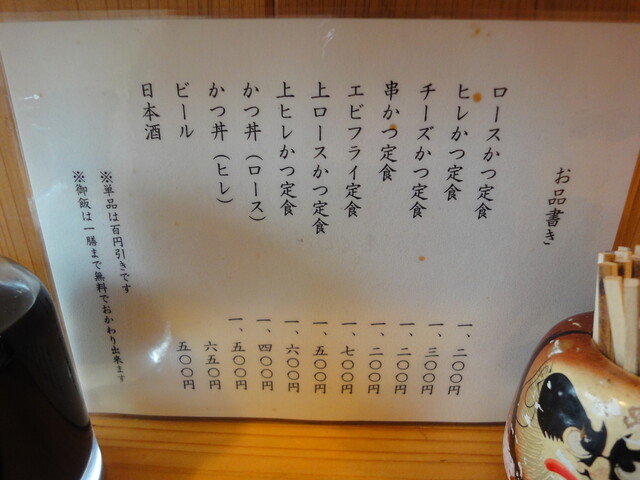 お品書き
ロースかつ定食 一、二〇〇円
ヒレかつ定食 一、三〇〇円
チーズかつ定食 一、二〇〇円
串かつ定食 一、二〇〇円
エビフライ定食 一、七〇〇円
上ロースかつ定食 一、五〇〇円
上ヒレかつ定食 一、六〇〇円
かつ丼（ロース） 一、四〇〇円
かつ丼（ヒレ） 一、五〇〇円
ビール 六五〇円
日本酒 五〇〇円
※単品は百円引きです
※御飯は一膳まで無料でおかわり出来ます